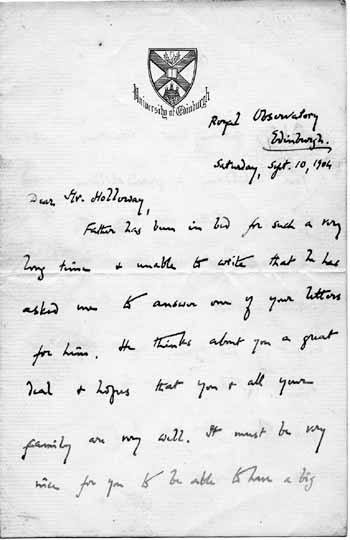 University of Edinburgh
Royal Observatory
Edinburgh.
Saturday, Sept. 10, 1904
Dear Mr. Holloway,
Father has been in bed for such a very
long time & unable to write that he has
asked me to answer one of your letters
for him. He thinks about you a great
deal & hopes that you & all your
family are very well. It must be very
nice for you to be able to have a big